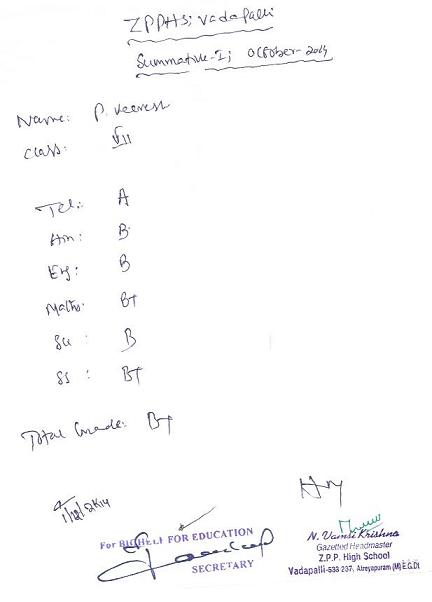 ZPPHS; Vadapalli
Summative-I; October-2014
Name: P. Veeresh
Class: VII
Tel: A
Hin: B
Eng: B
Maths: B+
Sci: B
SS: B+
Total Grade: B+
For BIGHELP FOR EDUCATION
SECRETARY
N. Vamsi Krishna
Gazetted Headmaster
Z.P.P. High School
Vadapalli-533 237, Atreyapuram (M) E.G.Dt